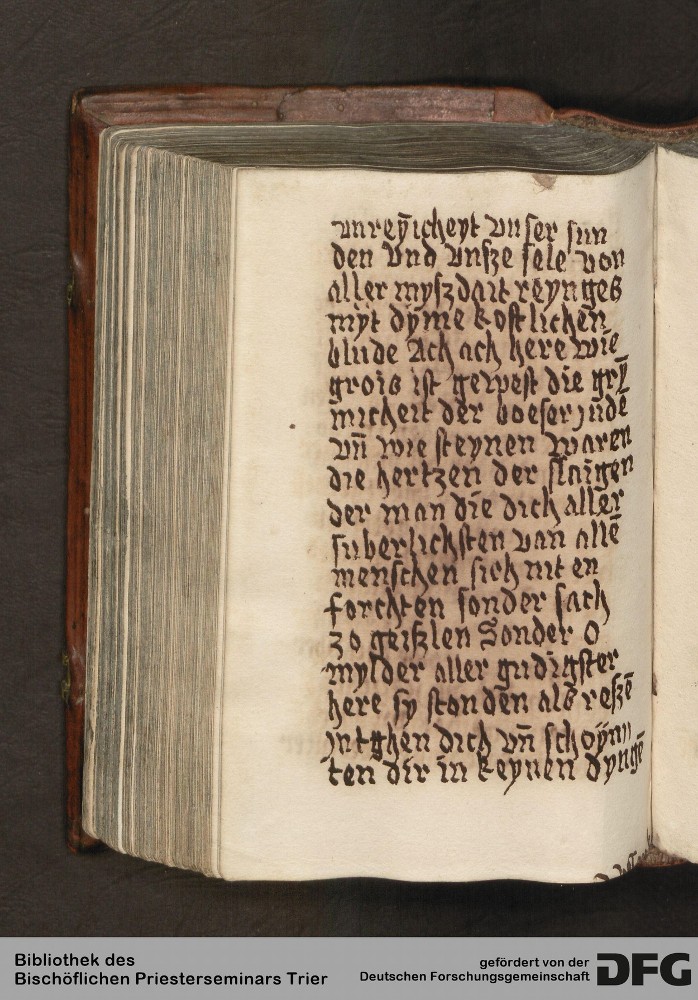 vnreȳicheyt vnser sun
den vnd vnsze sele von
aller myszdait reynges
myt dyme kostlichen
blude Ach ach here wie
grois ist gewest die grȳ
micheit der boeser jude
vn̄ wie steynen waren
die hertzen der slaigen
der man die dich aller
suberlichsten van allē
menschen sich nit en
forchten sonder sach
zo geiszlen Sonder O
mylder aller gudigster
here sy stonden als reszē
intghen dich vn̄ schoÿnn
ten dir in keynen dyngē
Bibliothek des
Bischöflichen Priesterseminars Trier
gefördert von der
Deutschen Forschungsgemeinschaft
DFG